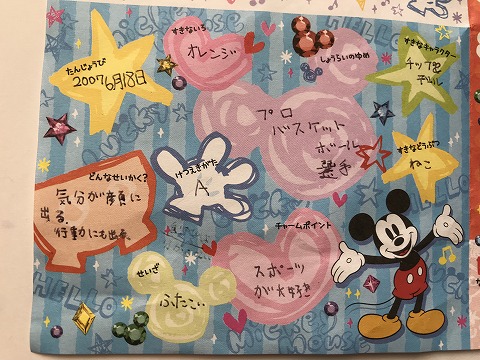 たんじょうび
2007 6月18日
すきないろ
オレンジ
しょうらいのゆめ
プロ
バスケット
ボール
選手
すきなキャラクター
チップ&
デール
けつえきがた
A
すきなどうぶつ
ねこ
どんなせいかく?
気分が顔に
出る。
行動にも出る。
せいざ
ふたご
チャームポイント
スポーツ
が大好き
HELLO
Mickey
Mouse